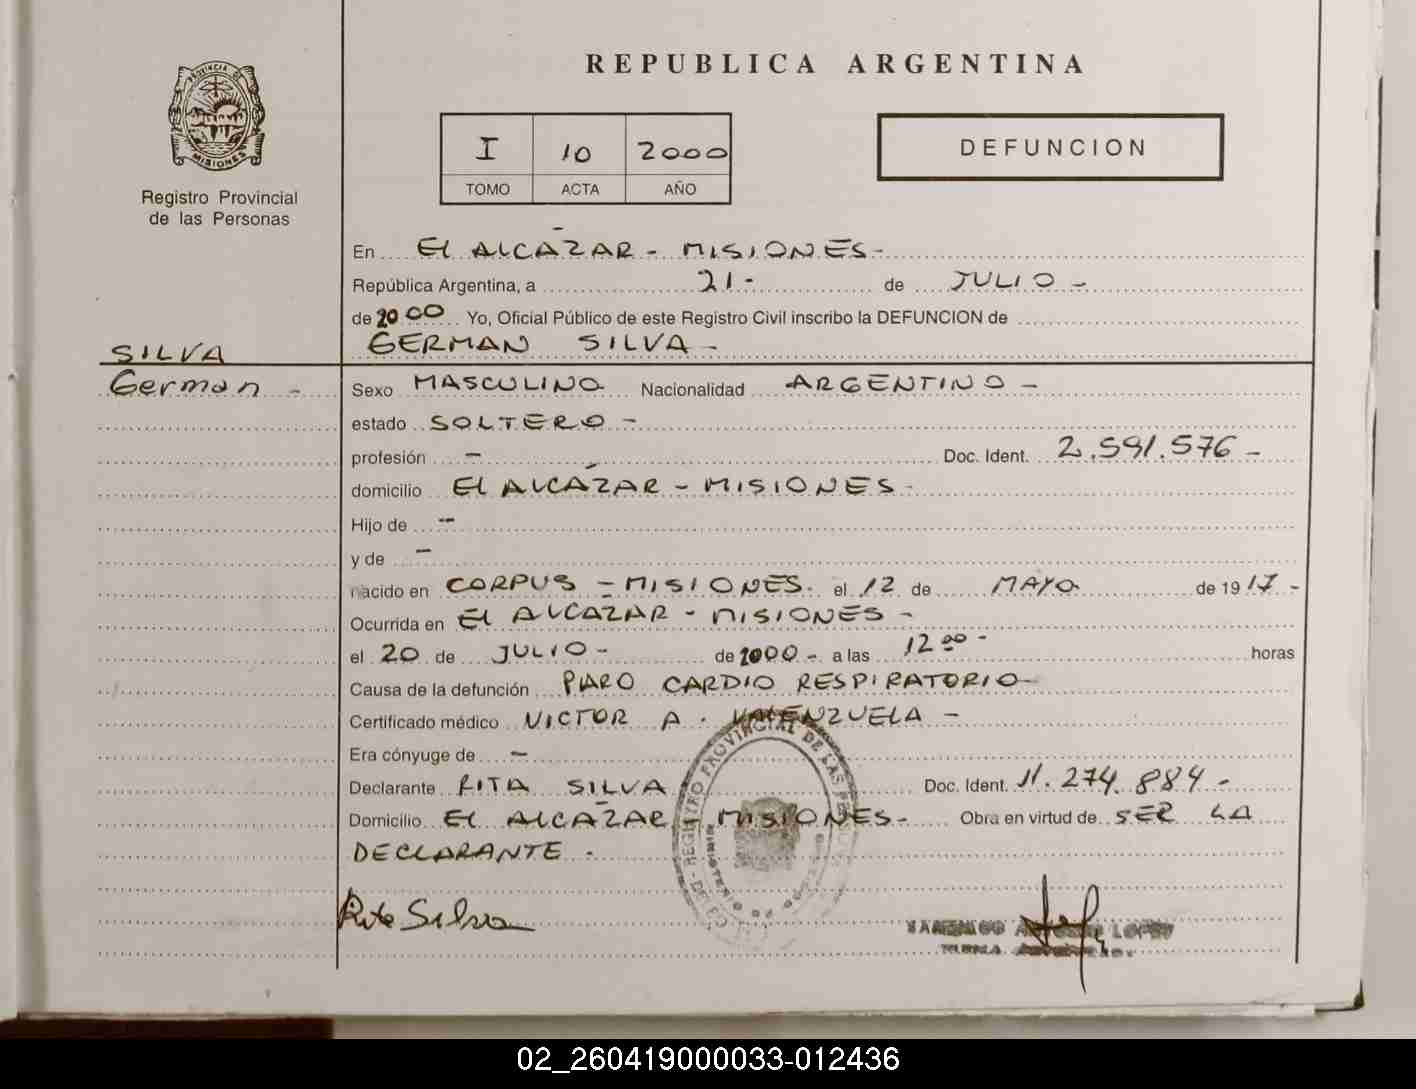 REPUBLICA ARGENTINA
PROVINCIA DE
MISIONES
Registro Provincial
de las Personas
I 10 2000
TOMO ACTA AÑO
DEFUNCION
En EL ALCÁZAR - MISIONES-
República Argentina, a 21- de JULIO -
de 2000 Yo, Oficial Público de este Registro Civil inscribo la DEFUNCION de
GERMAN SILVA -
SILVA
German -
Sexo MASCULINO Nacionalidad ARGENTINO -
estado SOLTERO -
profesión - Doc. Ident. 2.591.576 -
domicilio EL ALCÁZAR - MISIONES -
Hijo de -
y de -
nacido en CORPUS - MISIONES. el 12 de MAYO de 1917 -
Ocurrida en EL ALCAZAR - MISIONES -
el 20 de JULIO - de 2000 - a las 12 00 - horas
Causa de la defunción PARO CARDIO RESPIRATORIO -
Certificado médico VICTOR A. VALENZUELA -
Era cónyuge de -
Declarante RITA SILVA Doc. Ident. 11.274.884 -
Domicilio EL ALCÁZAR MISIONES - Obra en virtud de SER LA
DECLARANTE -
REGISTRO PROVINCIAL DE LAS
Rita Silva
LOPEZ
02_260419000033-012436